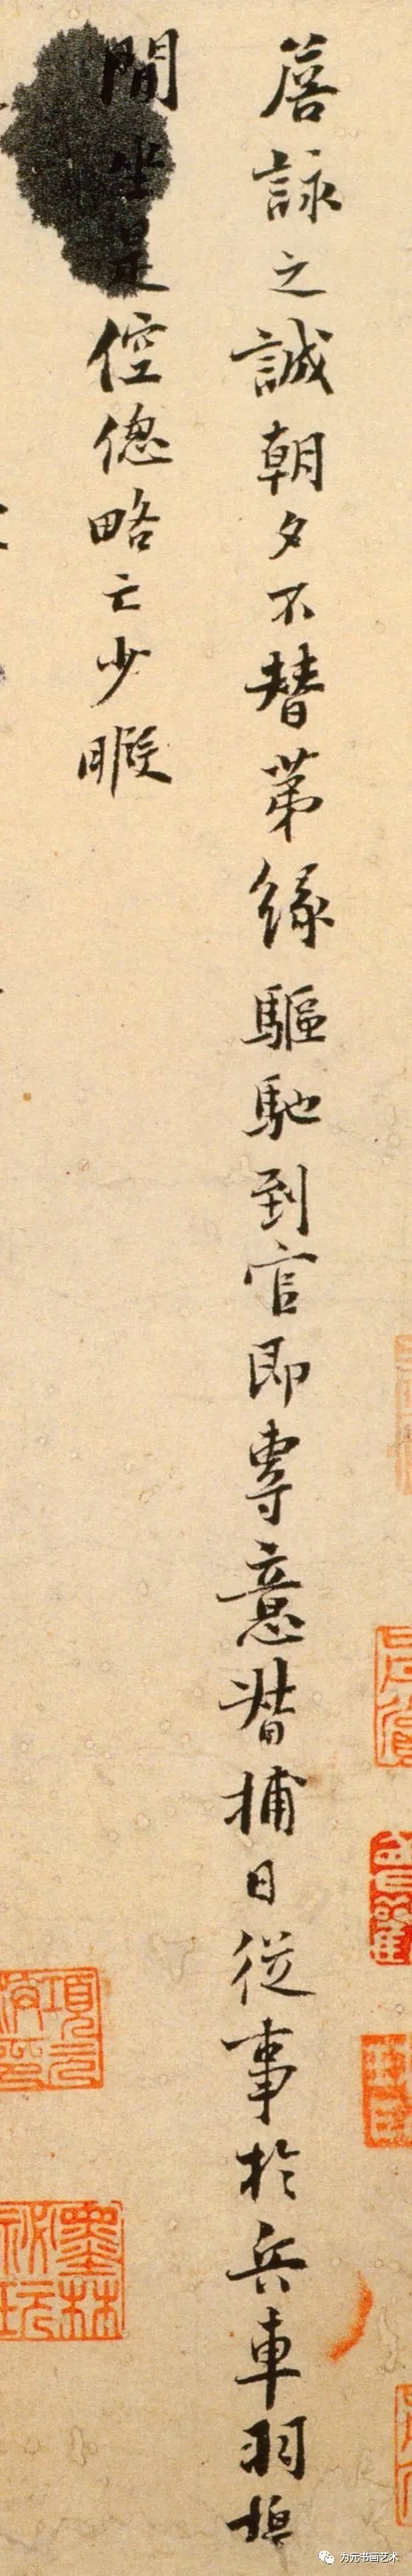 詹詠之誠朝夕不替苐緣驅馳到官即專意督捕日從事於兵車羽檄
間坐是倥偬略亡少暇
墨林祕玩
为元书画艺术